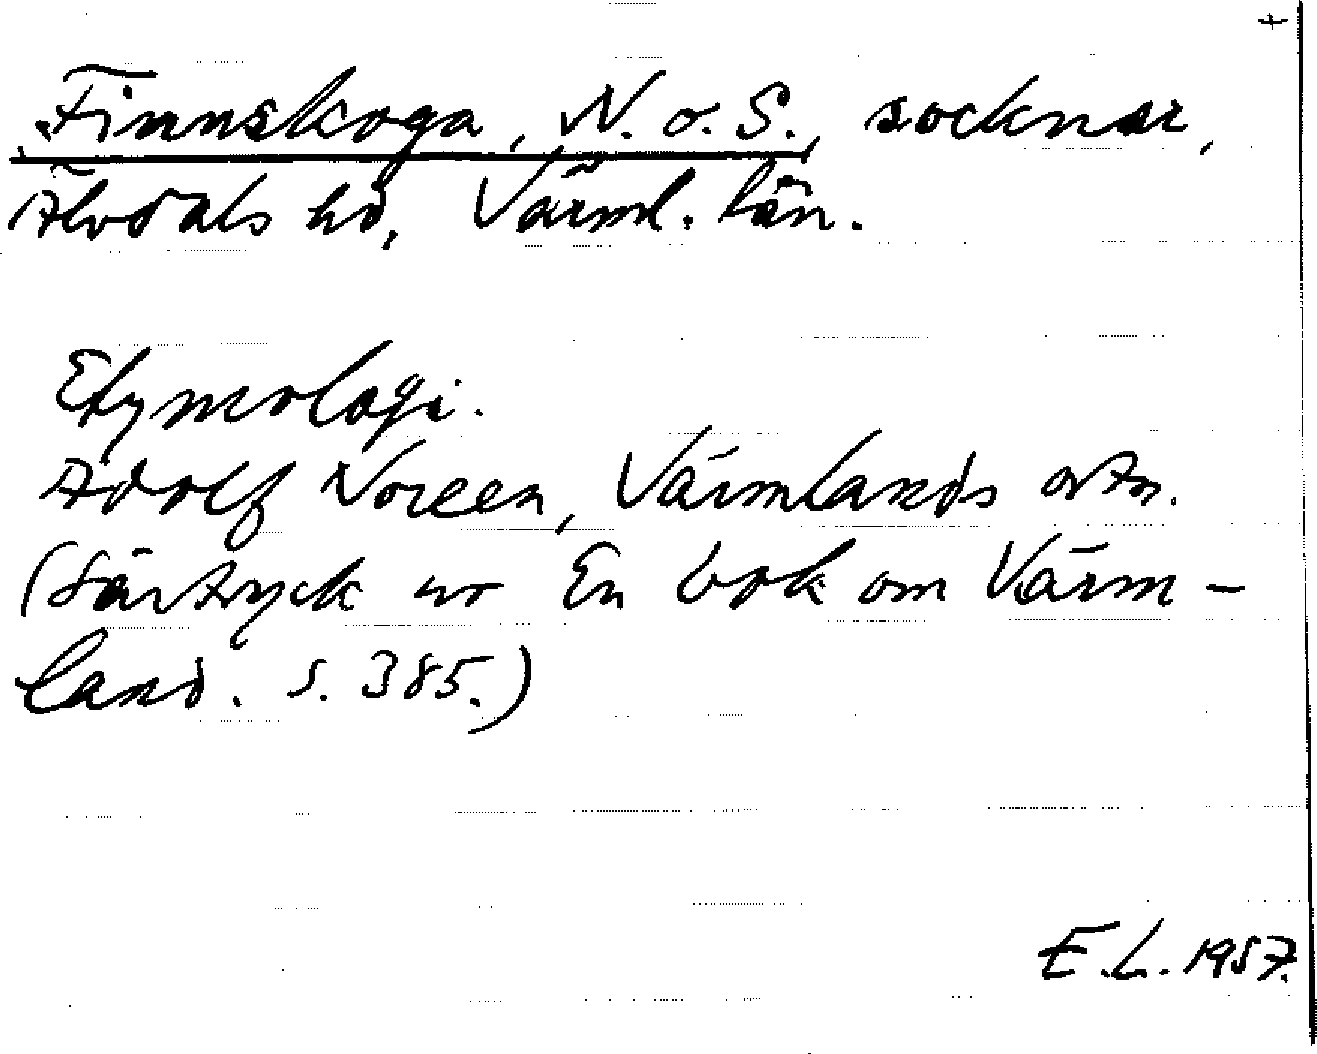 +
Finnskoga, N. o. S., socknar,
Älvdals hd, Värml. län.
Etymologi.
Adolf Noreen, Värmlands ortn.
(Särtryck ur En bok om Värm-
land. s. 385.)
E.L. 1957.